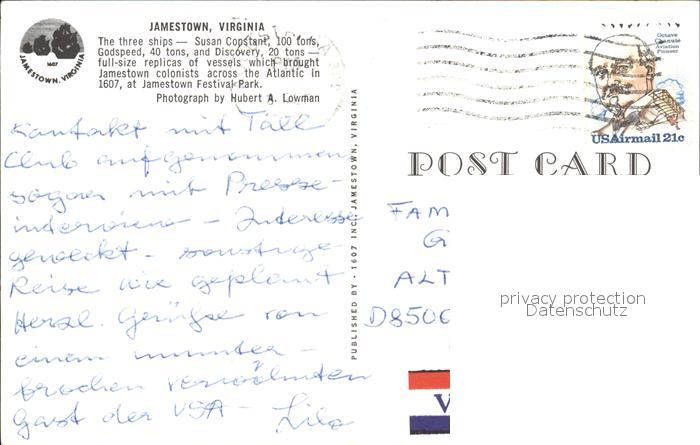 JAMESTOWN, VIRGINIA
The three ships — Susan Constant, 100 tons,
Godspeed, 40 tons, and Discovery, 20 tons —
full-size replicas of vessels which brought
Jamestown colonists across the Atlantic in
1607, at Jamestown Festival Park.
Photograph by Hubert A. Lowman
1607
JAMESTOWN, VIRGINIA
Kontakt mit Tall
Club aufgenommen
sogar mit Presse-
interview - Interesse
geweckt - sonstige
Reise wie geplant
Herzl. Grüße von
einem ununter-
brochen verwöhnten
Gast der USA -
Lilo
PUBLISHED BY - 1607 INC, JAMESTOWN, VIRGINIA
Octave
Chanute
Aviation
Pioneer
USAirmail 21c
POST CARD
FAM
G
ALT
D8506
privacy protection
Datenschutz
V